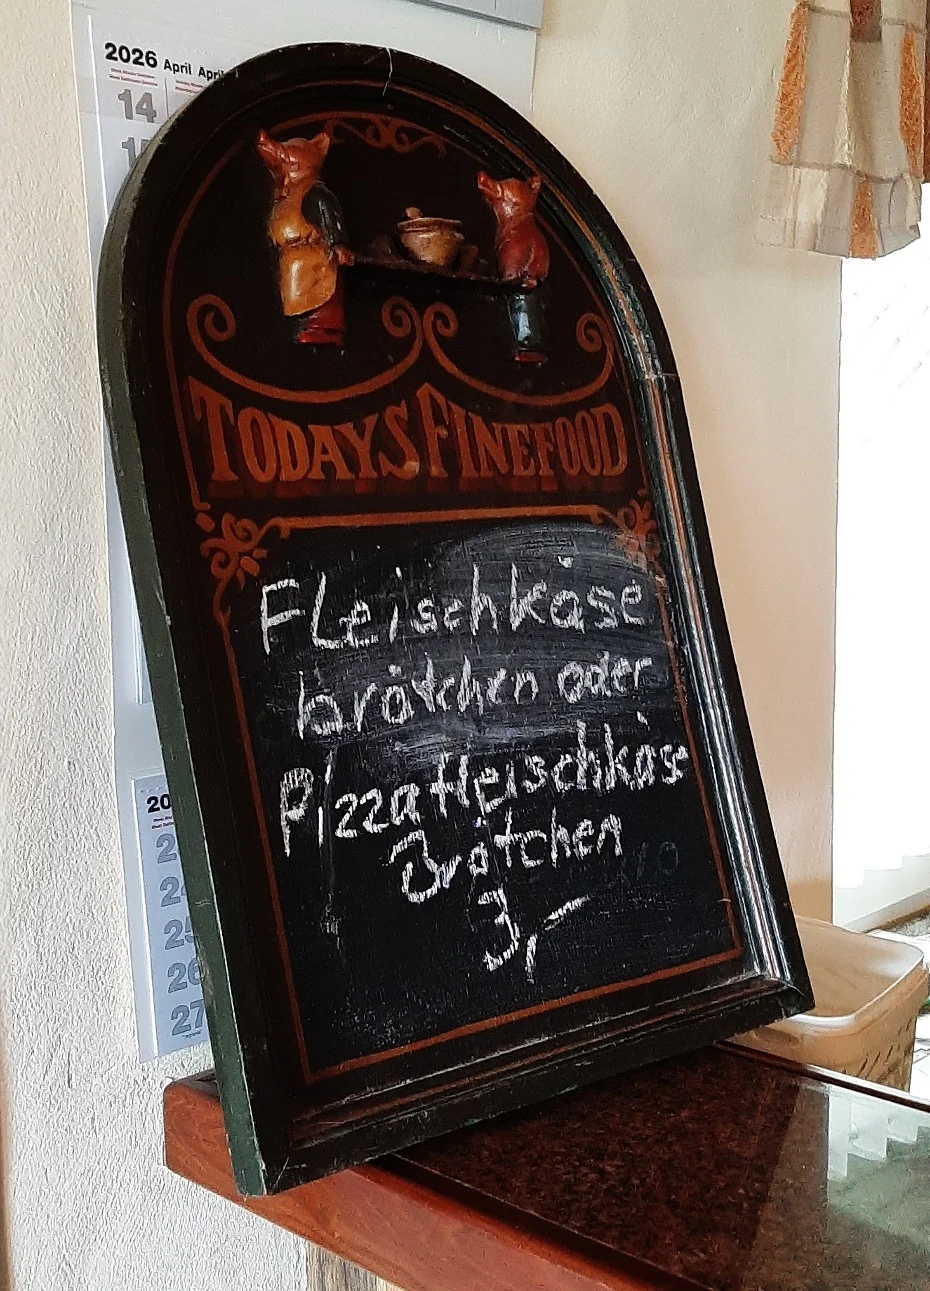 2026 April April
14
TODAYS FINEFOOD
Fleischkäse
brötchen oder
Pizzafleischkäs
Brötchen
3,-
20
2
24
25
26
27